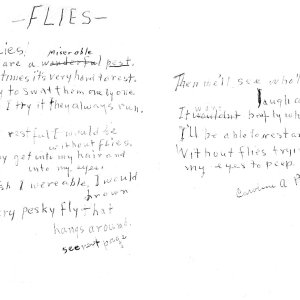 -FLIES-
lies!
miserable
are a wonderful pest.
times it's very hard to rest.
y to swat them one by one
I try it then always run.
restful I would be
without flies,
y get into my hair and
into my eyes.
sh I were able, I would
drown
ry pesky fly that
hangs around.
see next page
Then we'll see who'll
laugh a
won't
It wouldn't be fly wh
I'll be able to rest an
Without flies tryin
my eyes to peep.